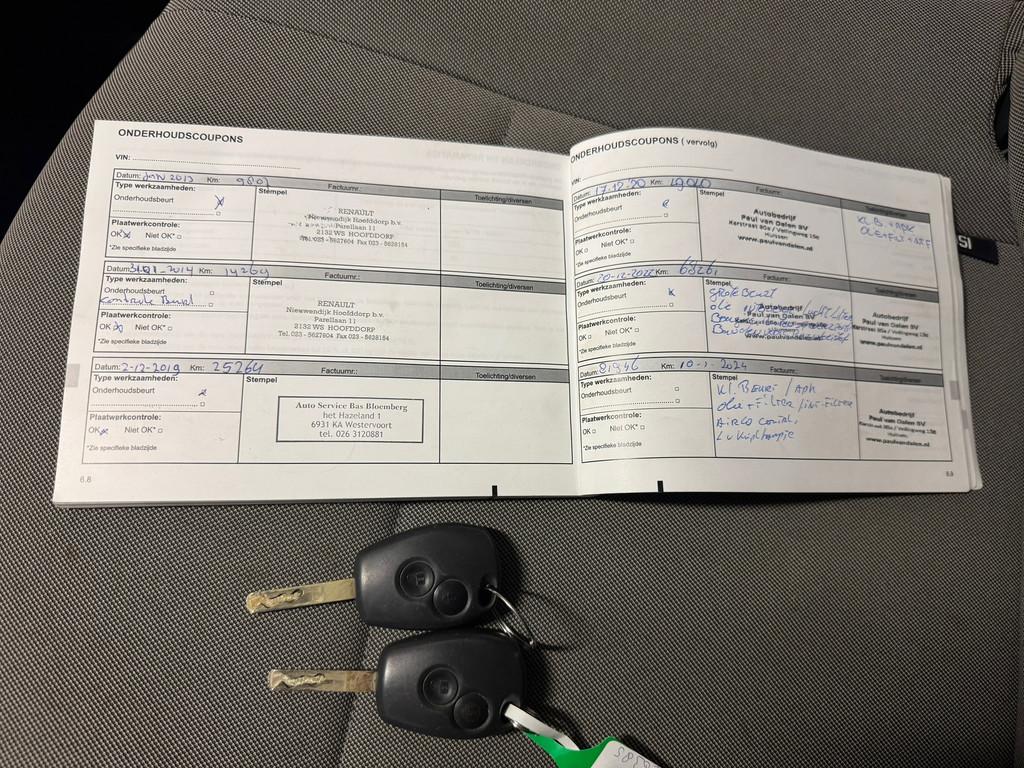 ONDERHOUDSCOUPONS
VIN:
Datum: JAN 2013 Km: 9801 Factuurnr.:
Type werkzaamheden: Stempel Toelichting/diversen
Onderhoudsbeurt
Plaatwerkcontrole:
OK Niet OK*
*Zie specifieke bladzijde
RENAULT
Nieuwendijk Hoofddorp b.v.
Parellaan 11
2132 WS HOOFDDORP
Tel. 023 - 5627604 Fax 023 - 5628154
Datum: 31-01-2014 Km: 14264 Factuurnr.:
Type werkzaamheden: Stempel Toelichting/diversen
Onderhoudsbeurt
Controle Beurt
Plaatwerkcontrole:
OK Niet OK*
*Zie specifieke bladzijde
RENAULT
Nieuwendijk Hoofddorp b.v.
Parellaan 11
2132 WS HOOFDDORP
Tel. 023 - 5627604 Fax 023 - 5628154
Datum: 2-12-2019 Km: 25264 Factuurnr.:
Type werkzaamheden: Stempel Toelichting/diversen
Onderhoudsbeurt
Plaatwerkcontrole:
OK Niet OK*
*Zie specifieke bladzijde
Auto Service Bas Bloemberg
het Hazeland 1
6931 KA Westervoort
tel. 026 3120881
6.8
ONDERHOUDSCOUPONS ( vervolg)
VIN:
Datum: 17-12-'20 Km: Factuurnr.:
Type werkzaamheden: Stempel Toelichting/diversen
Onderhoudsbeurt
Plaatwerkcontrole:
OK Niet OK*
*Zie specifieke bladzijde
Autobedrijf
Paul van Dalen BV
Kerstraat 80a / Vellingweg 15e
Huissen
www.paulvandalen.nl
KL.B. + APK
Datum: 20-12-2022 Km: 68261 Factuurnr.:
Type werkzaamheden: Stempel Toelichting/diversen
Onderhoudsbeurt
Plaatwerkcontrole:
OK Niet OK*
*Zie specifieke bladzijde
Grote Beurt
olie
Autobedrijf
Paul van Dalen BV
www.paulvandalen.nl
Autobedrijf
Paul van Dalen BV
www.paulvandalen.nl
81946 Km: 2024 Factuurnr.:
Type werkzaamheden: Stempel Toelichting/diversen
Onderhoudsbeurt
Plaatwerkcontrole:
OK Niet OK*
*Zie specifieke bladzijde
Kl. Beurt / Apk
olie + Filter / int-Filter
Airco
Autobedrijf
Paul van Dalen BV
www.paulvandalen.nl
6.9